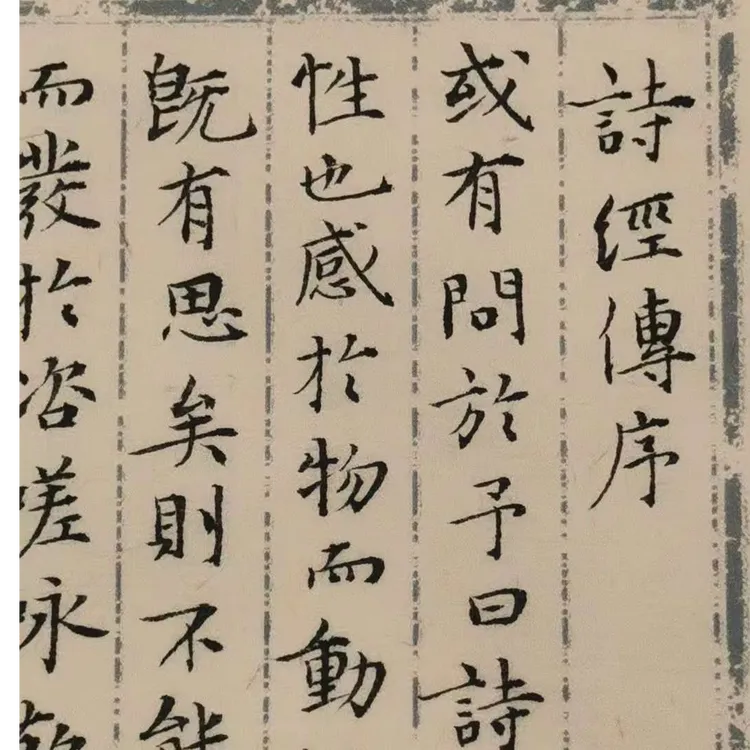 詩經傳序
或有問於予曰詩
性也感於物而動
既有思矣則不能
而發於咨嗟咏歎